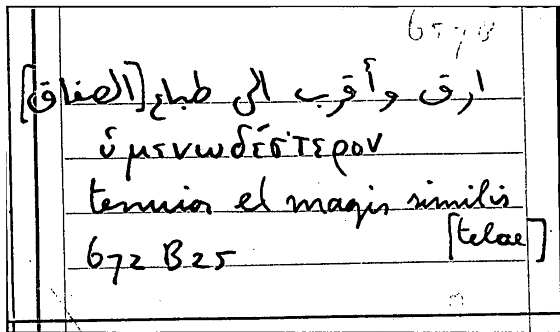 ارق وأقرب الى طباع [الصفاق]
ὑμενωδέστερον
tenuior et magis similis
[telae]
672 B25